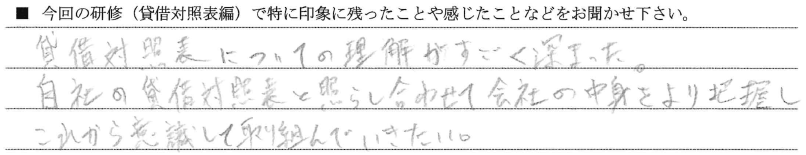 ■ 今回の研修（貸借対照表編）で特に印象に残ったことや感じたことなどをお聞かせ下さい。
貸借対照表についての理解がすごく深まった。
自社の貸借対照表と照らし合わせて会社の中身をより把握し
これから意識して取り組んでいきたい。